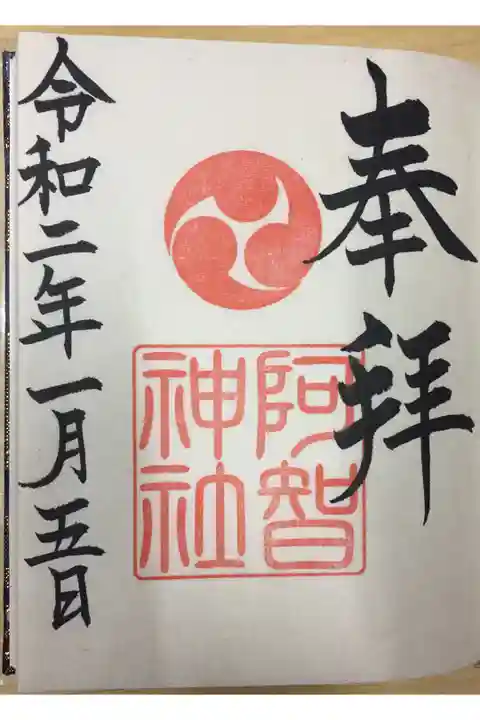 奉拝
阿智
神社
令和二年一月五日